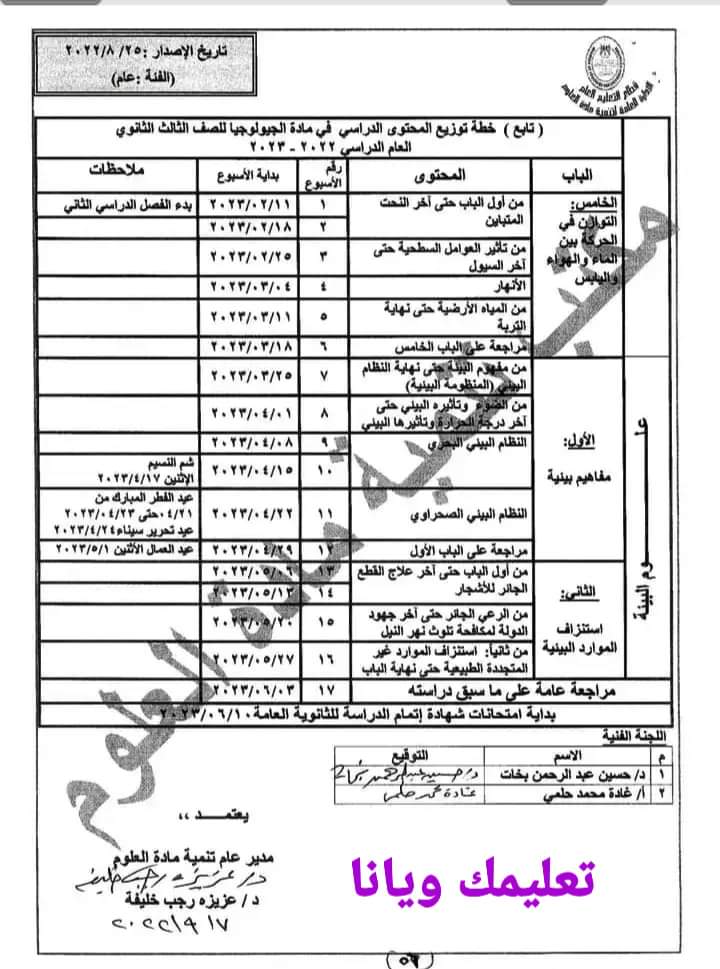 تاريخ الإصدار :٢٥/ ٢٠٢٢/٨
(الفئة :عام)
قطاع التعليم العام
الإدارة العامة لتنمية مادة العلوم
( تابع ) خطة توزيع المحتوى الدراسي في مادة الجيولوجيا للصف الثالث الثانوي
العام الدراسي ٢٠٢٢ - ٢٠٢٣
الباب المحتوى رقم الأسبوع بداية الأسبوع ملاحظات
الخامس:
التوازن في
الحركة بين
الماء والهواء
واليابس
من أول الباب حتى آخر النحت
المتباين
١ ٢٠٢٣/٠٢/١١ بدء الفصل الدراسي الثاني
٢ ٢٠٢٣/٠٢/١٨
من تأثير العوامل السطحية حتى
آخر السيول
٣ ٢٠٢٣/٠٢/٢٥
الأنهار ٤ ٢٠٢٣/٠٣/٠٤
من المياه الأرضية حتى نهاية
التربة
٥ ٢٠٢٣/٠٣/١١
مراجعة على الباب الخامس ٦ ٢٠٢٣/٠٣/١٨
علـــــوم البيئة
الأول:
مفاهيم بيئية
من مفهوم البيئة حتى نهاية النظام
البيئي (المنظومة البيئية)
٧ ٢٠٢٣/٠٣/٢٥
من الضوء وتأثيره البيئي حتى
آخر درجة الحرارة وتأثيرها البيئي
٨ ٢٠٢٣/٠٤/٠١
النظام البيئي البحري ٩ ٢٠٢٣/٠٤/٠٨
١٠ ٢٠٢٣/٠٤/١٥ شم النسيم
الإثنين ٢٠٢٣/٤/١٧
النظام البيئي الصحراوي ١١ ٢٠٢٣/٠٤/٢٢
عيد الفطر المبارك من
٠٤/٢١حتى ٢٠٢٣/٠٤/٢٣
عيد تحرير سيناء٢٠٢٣/٤/٢٤
مراجعة على الباب الأول ١٢ ٢٠٢٣/٠٤/٢٩ عيد العمال الأثنين ٢٠٢٣/٥/١
الثاني:
استنزاف
الموارد البيئية
من أول الباب حتى آخر علاج القطع
الجائر للأشجار
١٣ ٢٠٢٣/٠٥/٠٦
١٤ ٢٠٢٣/٠٥/١٣
من الرعي الجائر حتى آخر جهود
الدولة لمكافحة تلوث نهر النيل
١٥ ٢٠٢٣/٠٥/٢٠
من ثانياً: استنزاف الموارد غير
المتجددة الطبيعية حتى نهاية الباب
١٦ ٢٠٢٣/٠٥/٢٧
مراجعة عامة على ما سبق دراسته ١٧ ٢٠٢٣/٠٦/٠٣
بداية امتحانات شهادة إتمام الدراسة للثانوية العامة٢٠٢٣/٠٦/١٠
مكتب تنمية مادة العلوم
اللجنة الفنية
م الاسم التوقيع
١ د/ حسين عبد الرحمن بخات
٢ أ/ غادة محمد حلمي غادة محمد حلمي
يعتمــــد ،،
مدير عام تنمية مادة العلوم
د/ عزيزه رجب خليفة
د / عزيزه رجب خليفة
٢٠٢٢/٩/٧
تعليمك ويانا
(٥٦)